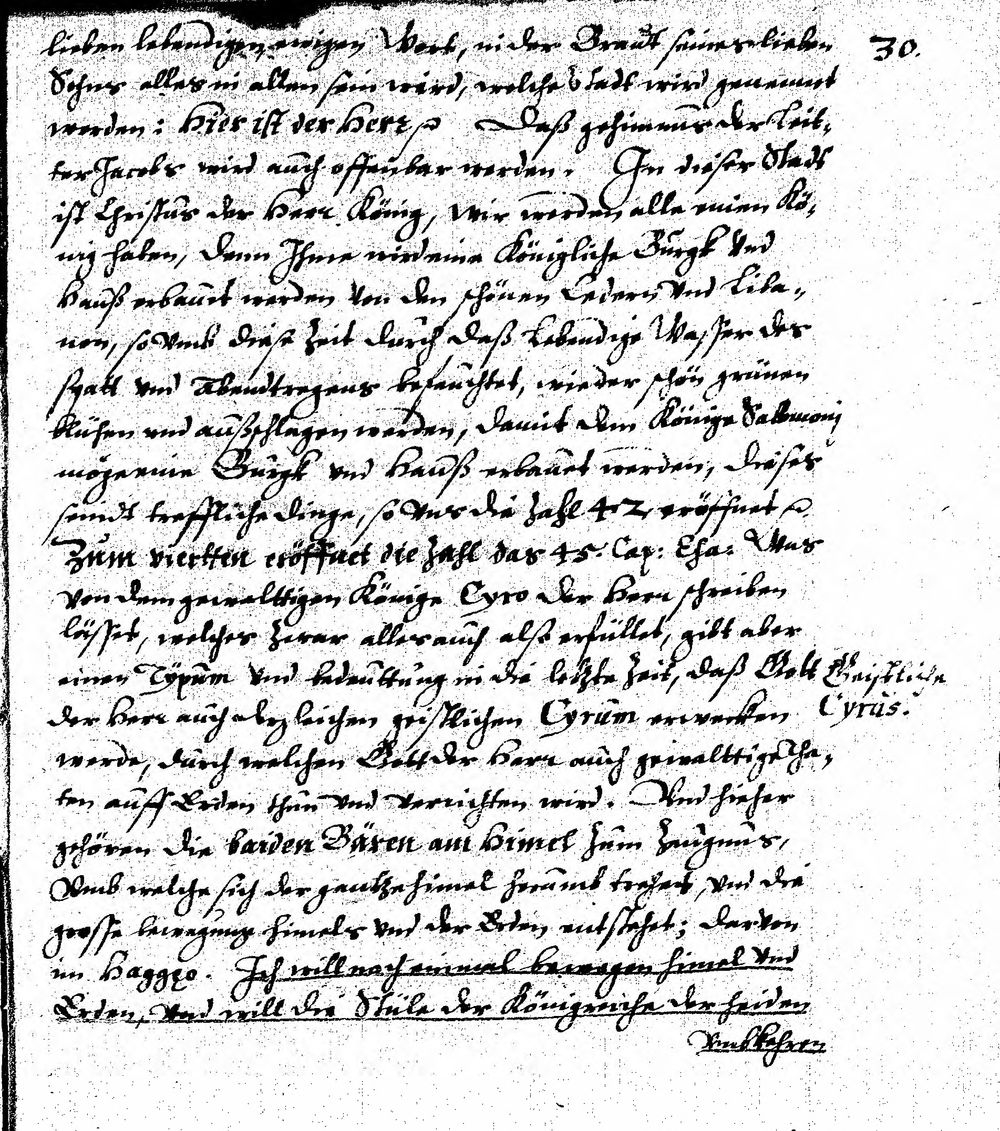 30.
lieben lebendigen ewigen Wort, in der Braut seines lieben
Sohns alles in allen sein wird, welche Stadt wird genennet
werden: Hier ist der Herr. Daß geheimnus der Leit-
ter Jacobs wird auch offenbar werden. In dieser Stadt
ist Christus der Herr König, Wir werden alle einen Kö-
nig haben, denn Ihme wird eine Königliche Burgk vnd
Hauß erbauet werden von den schönen Cedern vnd Liba-
non, so vmb diese Zeit durch daß Lebendige Wasser des
spatt vnd Abendtregens befeuchtet, wieder schön grünen
blühen vnd außschlagen werden, damit dem Könige Salomonj
möge eine Burgk vnd Hauß erbauet werden, dieses
seindt treffliche dinge, so vns die Zahl 42 eröffnet.
Zum vierten eröffnet die Zahl das 45. Cap: Esa: Was
von dem gewalttigen Könige Cyro der Herr schreiben
lässet, welches zwar alles auch alß erfüllet, gibt aber
einen Typum vnd bedeuttung in die letzte Zeit, daß Gott
der Herr auch dergleichen geistlichen Cyrum erwecken
werde, durch welchen Gott der Herr auch gewalttige Tha-
ten auff Erden thun vnd verrichten wird. Vnd hieher
gehören die beiden Bären am Himel zum Zeugnus,
Vmb welche sich der gantze himel herumb trehet, vnd die
grosse bewegung himels vnd der Erden entstehet; darvon
im Haggeo. Ich will noch einmal bewegen himel vnd
Erden, vnd will die Stüle der Königreiche der heiden
vmbkehren
Geistliche
Cyrus.